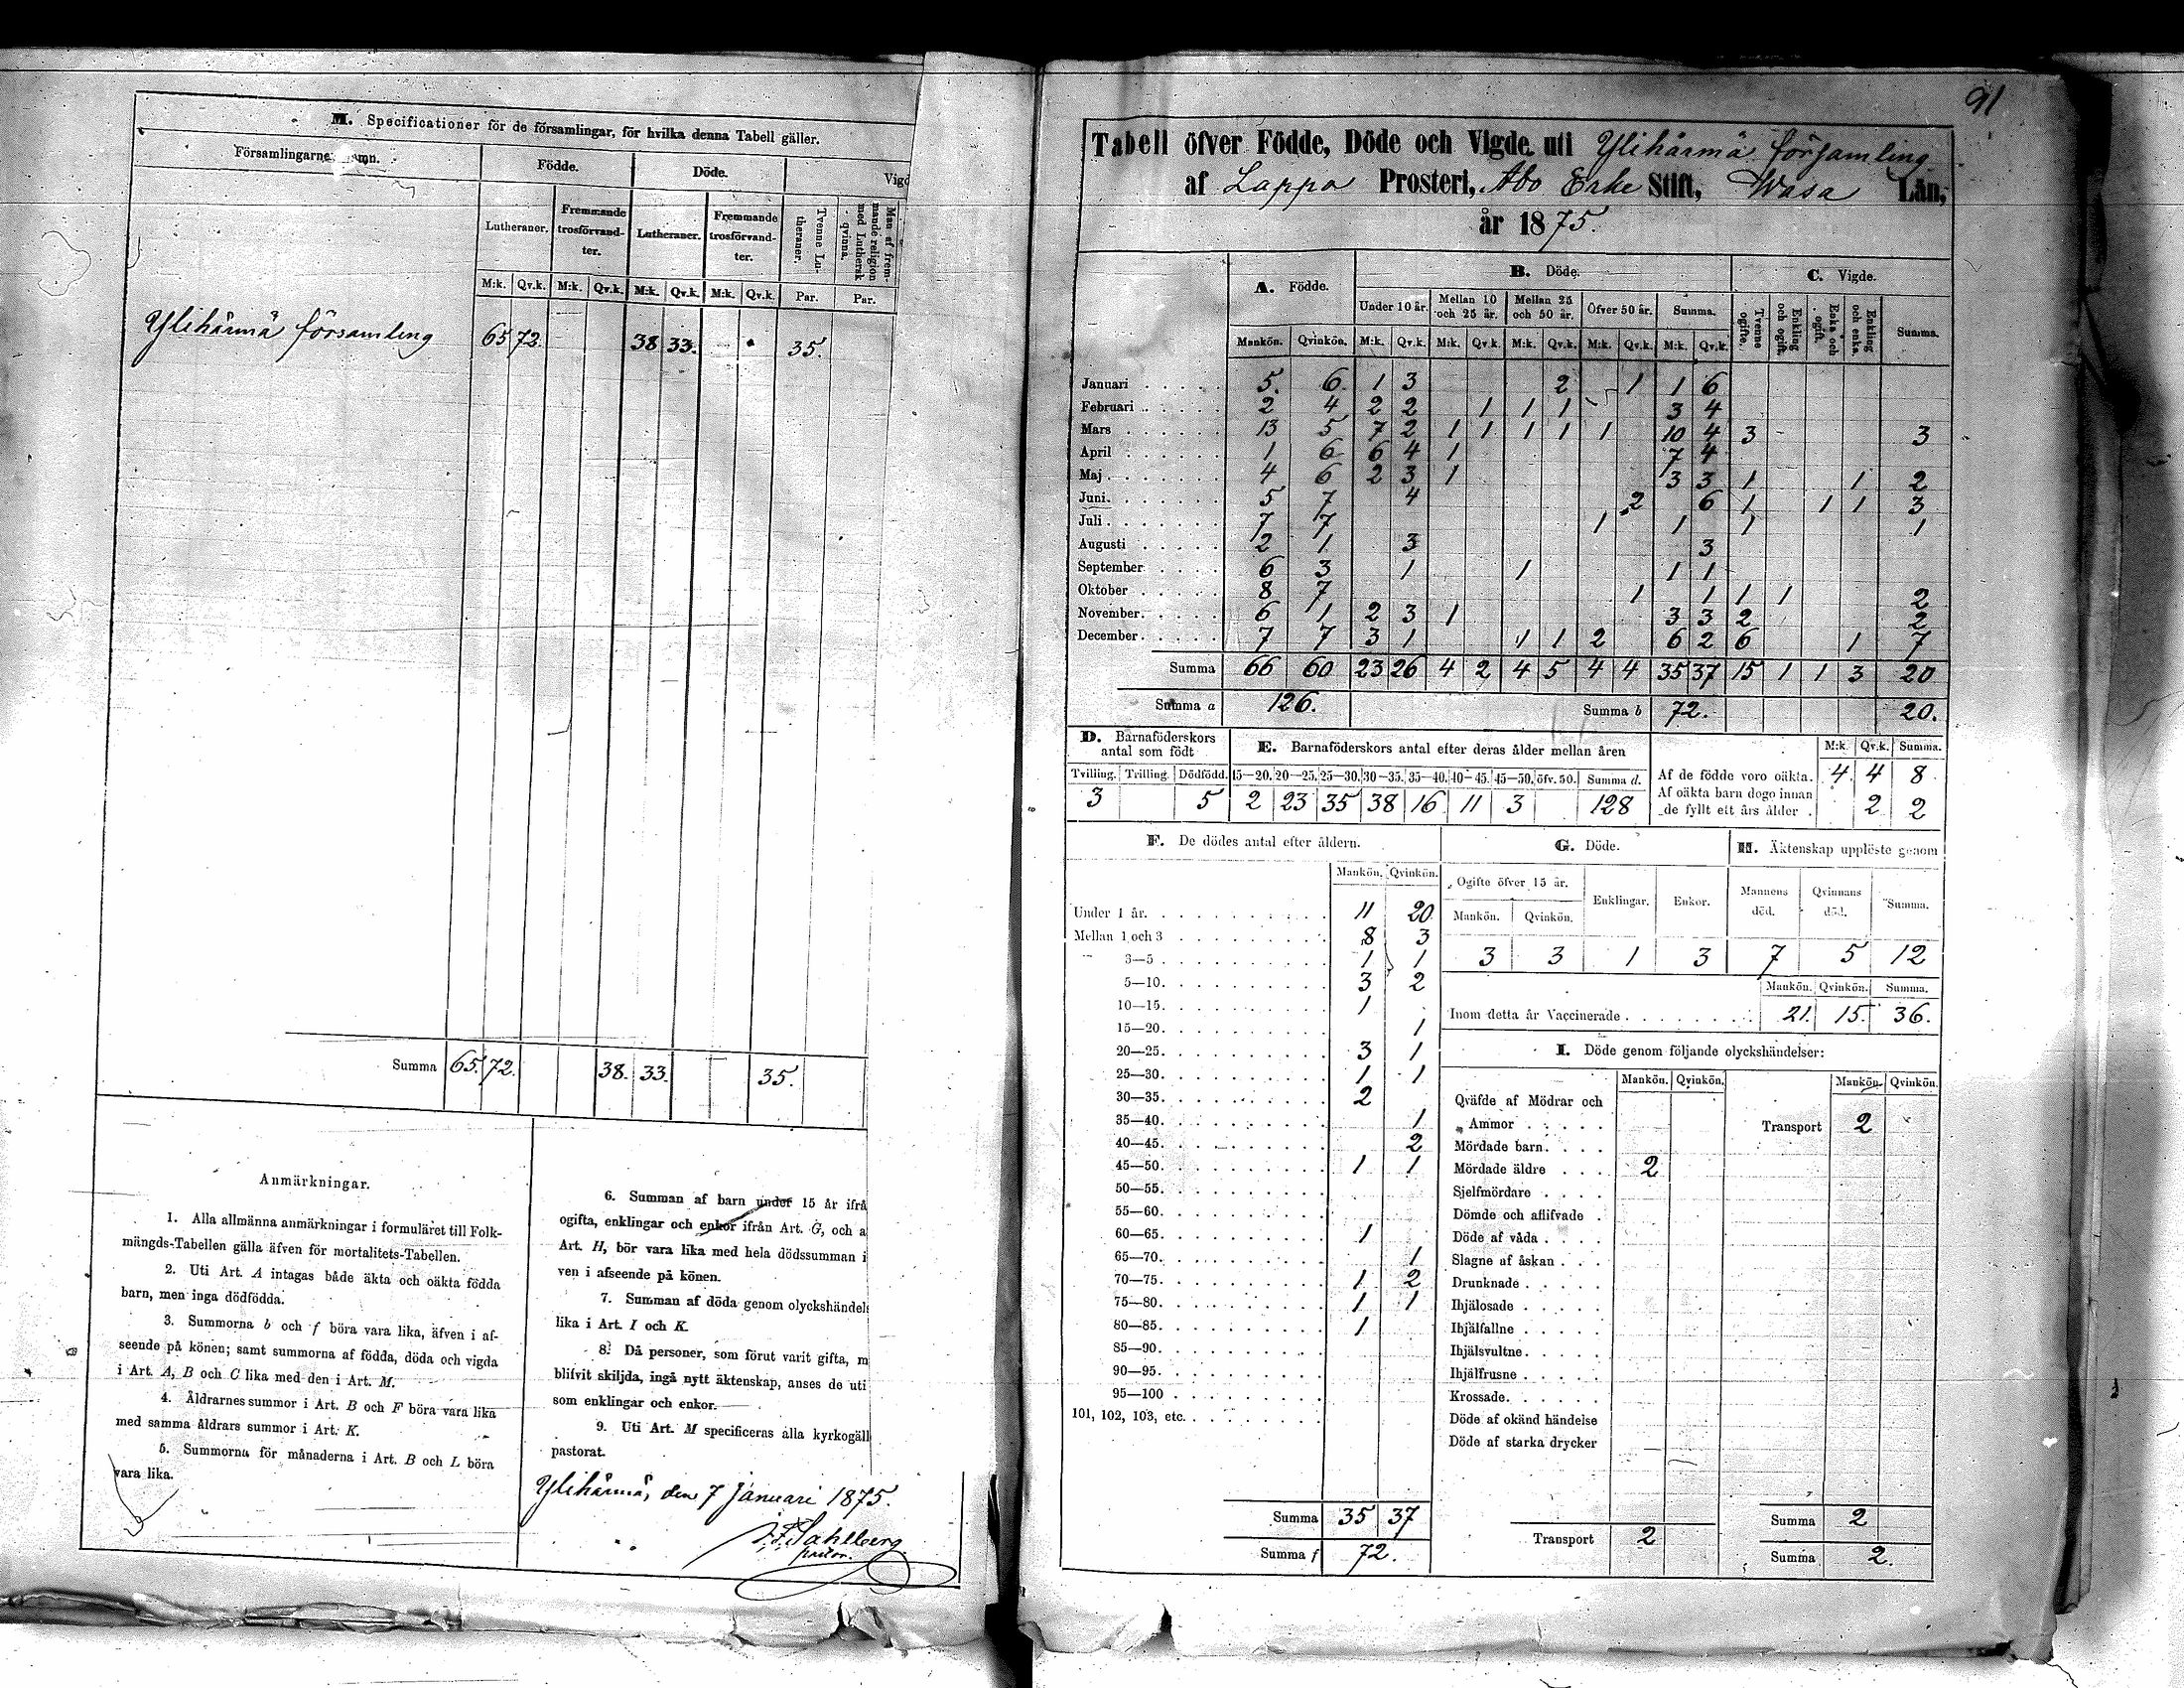 M. Specificationer för de församlingar, för hvilka denna Tabell gäller.
Församlingarnes namn. Födde. Döde. Vigd
Lutheraner. Fremmande trosförvandter. Lutheraner. Fremmande trosförvandter. Tvenne Lutheraner. Man af fremmande religion med Luthersk qvinna.
M:k. Qv.k. M:k. Qv.k. M:k. Qv.k. M:k. Qv.k. Par. Par.
Ylihärmä församling 65 72. 38 33. 35.
Summa 65. 72. 38. 33. 35.
Anmärkningar.
1. Alla allmänna anmärkningar i formuläret till Folk-
mängds-Tabellen gälla äfven för mortalitets-Tabellen.
2. Uti Art. A intagas både äkta och oäkta födda
barn, men inga dödfödda.
3. Summorna b och f böra vara lika, äfven i af-
seende på könen; samt summorna af födda, döda och vigda
i Art. A, B och C lika med den i Art. M.
4. Åldrarnes summor i Art. B och F böra vara lika
med samma åldrars summor i Art. K.
5. Summorna för månaderna i Art. B och L böra
vara lika.
6. Summan af barn under 15 år ifrå
ogifta, enklingar och enkor ifrån Art. G, och a
Art. H, bör vara lika med hela dödssumman i
ven i afseende på könen.
7. Summan af döda genom olyckshändels
lika i Art. I och K.
8. Då personer, som förut varit gifta, m
blifvit skiljda, ingå nytt äktenskap, anses de uti
som enklingar och enkor.
9. Uti Art. M specificeras alla kyrkogäll
pastorat.
Ylihärmä, den 7 Januari 1875.
J. F. Sahlberg
pastor.
91
Tabell öfver Födde, Döde och Vigde uti Ylihärmä församling
af Lappo Prosteri, Åbo Erke Stift, Wasa Län,
år 1875.
A. Födde. B. Döde. C. Vigde.
Under 10 år. Mellan 10 och 25 år. Mellan 25 och 50 år. Öfver 50 år. Summa. Tvenne ogifte. Enkling och ogift. Enka och ogift. Enkling och enka. Summa.
Mankön. Qvinkön. M:k. Qv.k. M:k. Qv.k. M:k. Qv.k. M:k. Qv.k. M:k. Qv.k.
Januari 5. 6. 1 3 2 1 1 6
Februari 2 4 2 2 1 1 1 3 4
Mars 13 5 7 2 1 1 1 1 1 10 4 3 3
April 1 6 6 4 1 7 4
Maj 4 6 2 3 1 3 3 1 1 2
Juni 5 7 4 2 6 1 1 1 3
Juli 7 7 1 1 1 1
Augusti 2 1 3 3
September 6 3 1 1 1 1
Oktober 8 7 1 1 1 1 2
November 6 1 2 3 1 3 3 2 2
December 7 7 3 1 1 1 2 6 2 6 1 7
Summa 66 60 23 26 4 2 4 5 4 4 35 37 15 1 1 3 20
Summa a 126. Summa b 72. 20.
D. Barnaföderskors antal som födt
Tvilling. Trilling. Dödfödd.
3 5
E. Barnaföderskors antal efter deras ålder mellan åren
15—20. 20—25. 25—30. 30—35. 35—40. 40—45. 45—50. öfv. 50. Summa d.
2 23 35 38 16 11 3 128
M:k. Qv.k. Summa.
Af de födde voro oäkta. 4. 4 8
Af oäkta barn dogo innan
de fyllt ett års ålder . 2 2
F. De dödes antal efter åldern.
Mankön. Qvinkön.
Under 1 år. 11 20.
Mellan 1 och 3 8 3
3—5 1 1
5—10. 3 2
10—15. 1
15—20. 1
20—25. 3 1
25—30. 1 1
30—35. 2
35—40. 1
40—45. 2
45—50. 1 1
50—55.
55—60.
60—65. 1
65—70. 1
70—75. 1 2
75—80. 1 1
80—85. 1
85—90.
90—95.
95—100
101, 102, 103, etc.
Summa 35 37
Summa f 72.
G. Döde.
Ogifte öfver 15 år. Enklingar. Enkor.
Mankön. Qvinkön.
3 3 1 3
H. Äktenskap upplöste genom
Mannens död. Qvinnans död. Summa.
7 5 12
Mankön. Qvinkön. Summa.
Inom detta år Vaccinerade 21. 15. 36.
I. Döde genom följande olyckshändelser:
Mankön. Qvinkön. Mankön. Qvinkön.
Qväfde af Mödrar och
Ammor Transport 2
Mördade barn
Mördade äldre 2
Sjelfmördare
Dömde och aflifvade
Döde af våda
Slagne af åskan
Drunknade
Ihjälosade
Ihjälfallne
Ihjälsvultne
Ihjälfrusne
Krossade
Döde af okänd händelse
Döde af starka drycker
Transport 2
Summa 2
Summa 2.